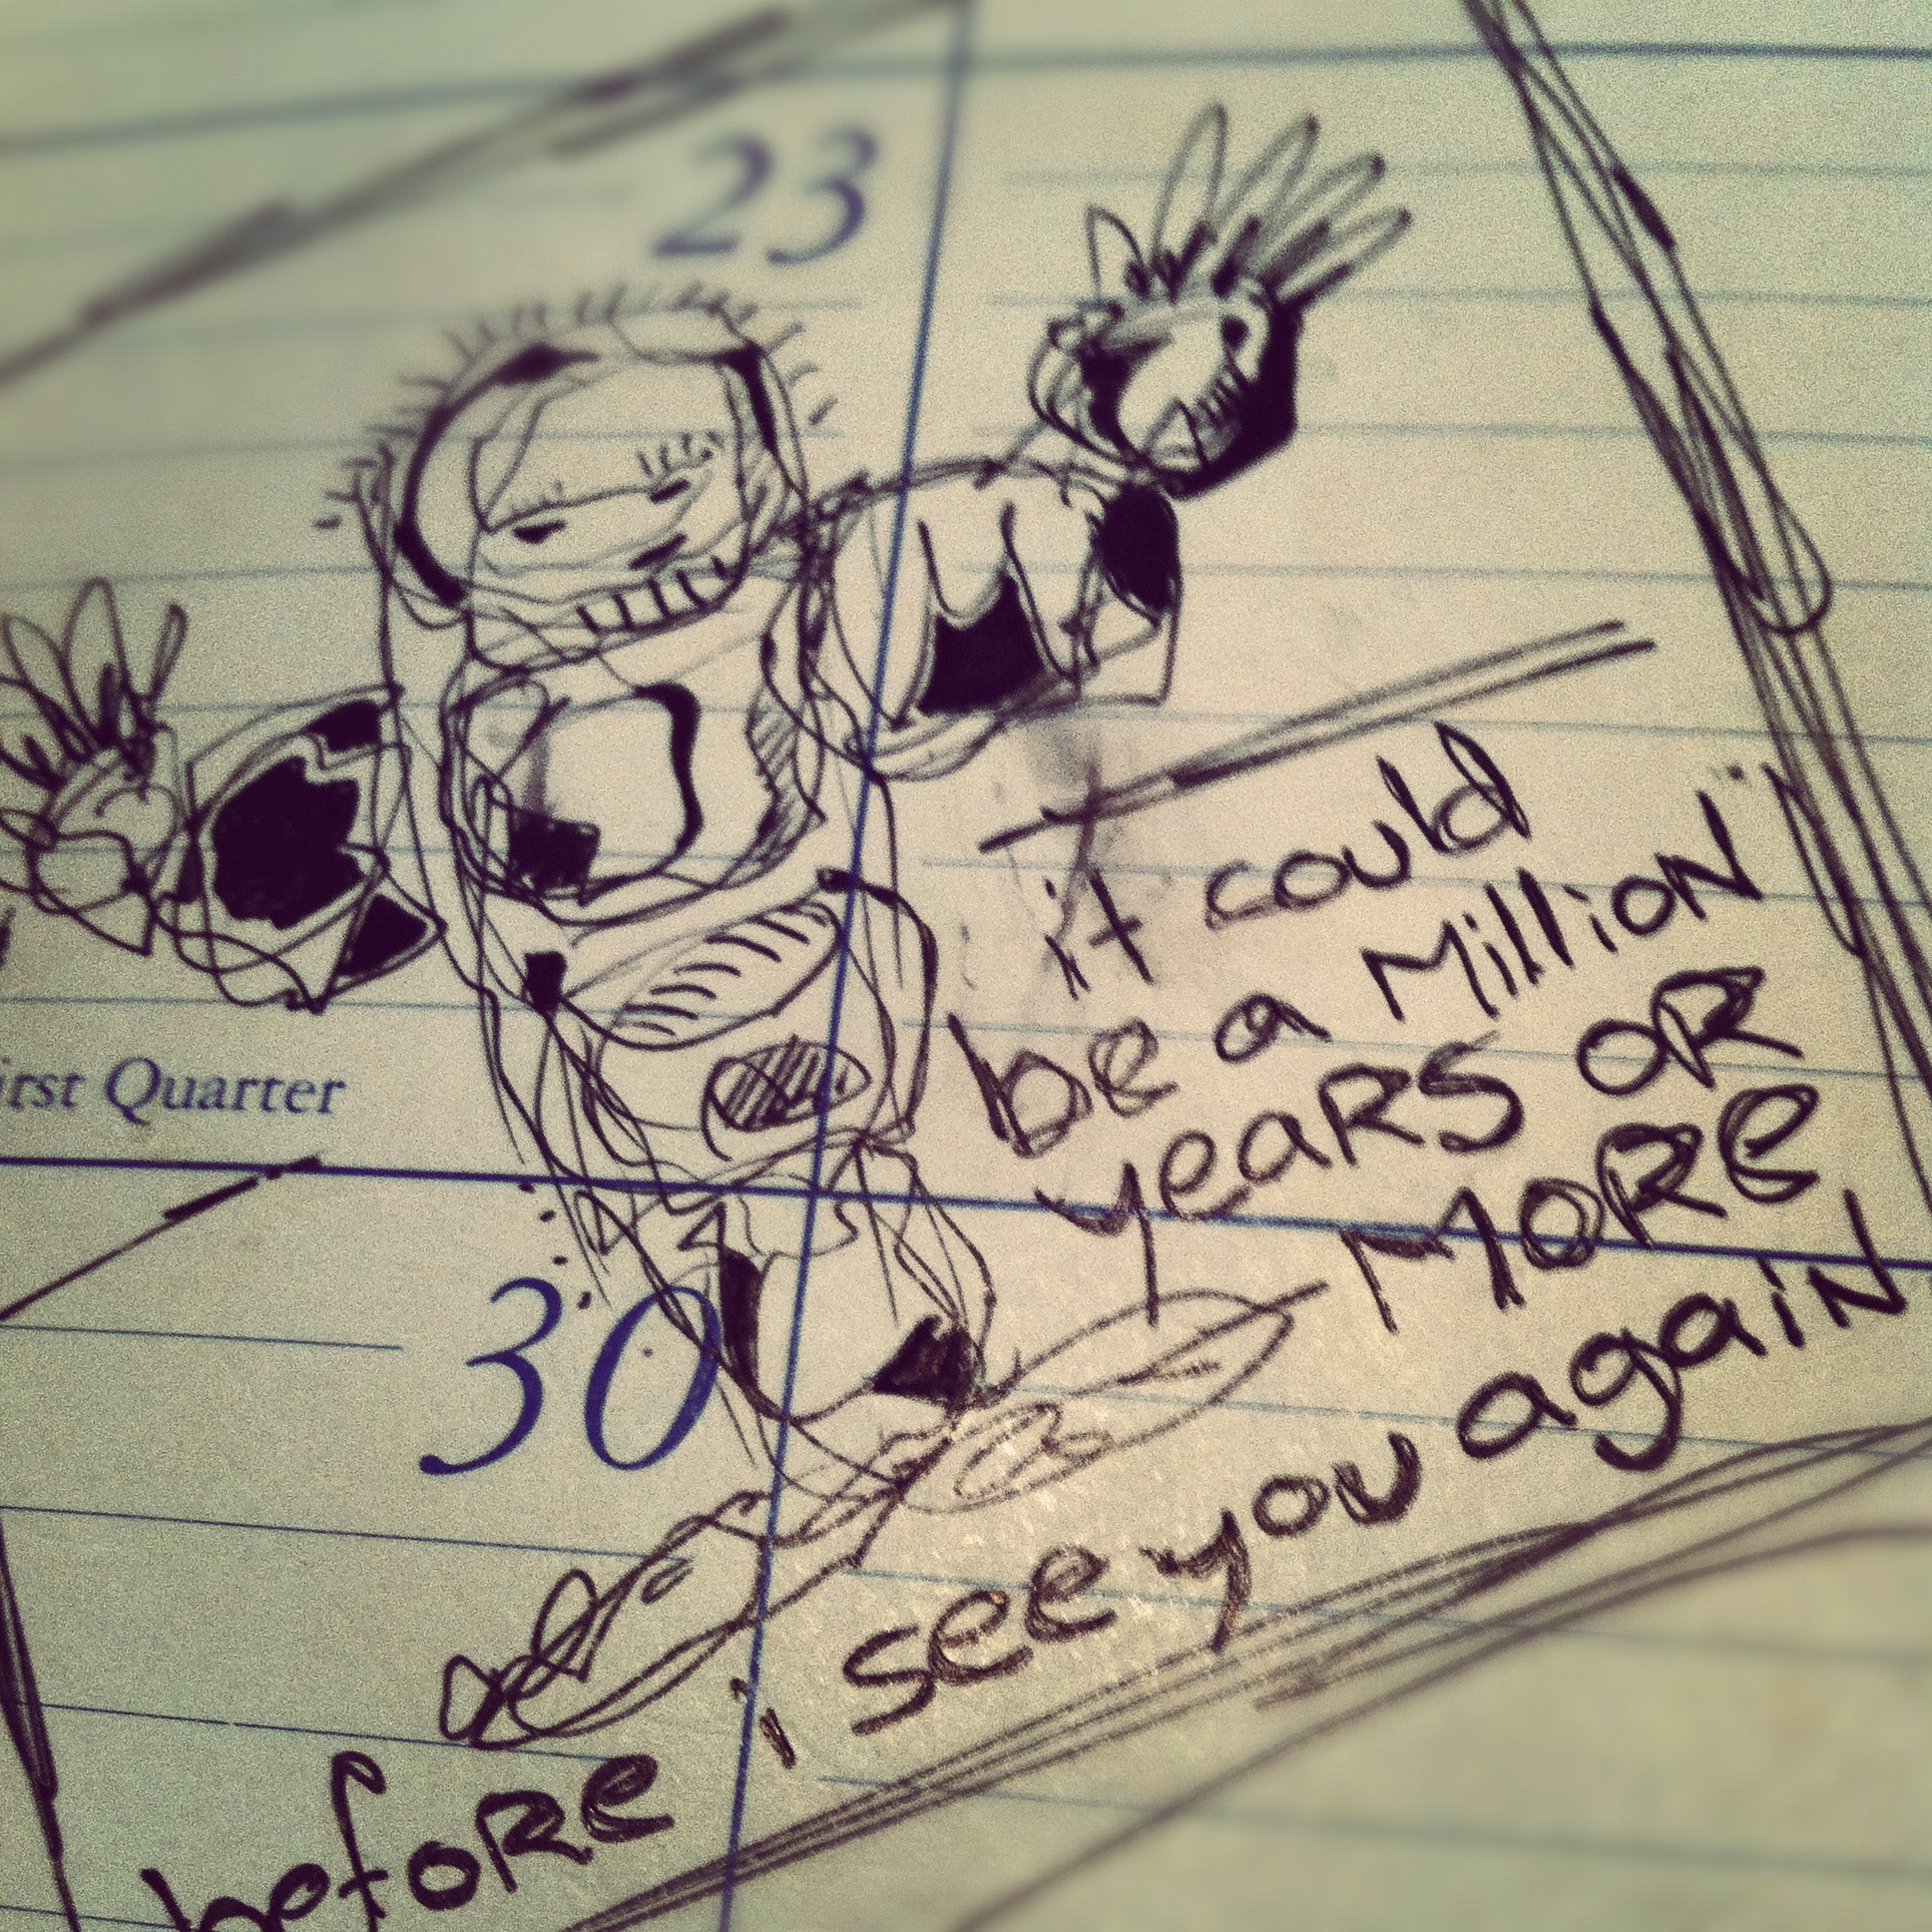 23
it could
be a Million
years or
More
before i see you again
First Quarter
30